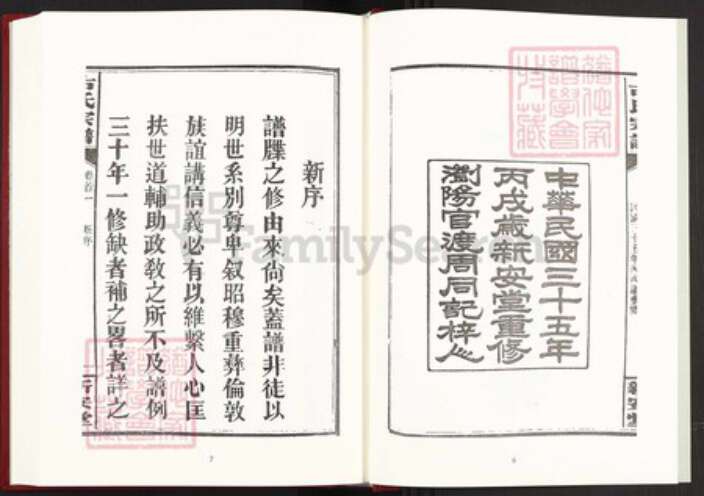 中華民國三十五年
丙戌歲新安堂重修
瀏陽官渡周同記梓
新安堂
6
新序
譜牒之修由來尚矣蓋譜非徒以
明世系別尊卑敘昭穆重彝倫敦
族誼講信義必有以維繫人心匡
扶世道輔助政敎之所不及譜例
三十年一修缺者補之畧者詳之
氏宗譜
卷首一
新序
新安堂
7
FamilySearch